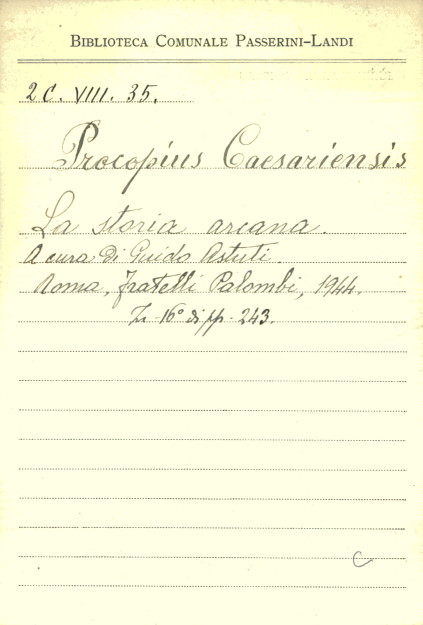 BIBLIOTECA COMUNALE PASSERINI-LANDI
2C. VIII. 35.
Procopius Caesariensis
La storia arcana.
A cura di Guido Astuti.
Roma, Fratelli Palombi, 1944.
In-16° di pp. 243.
C